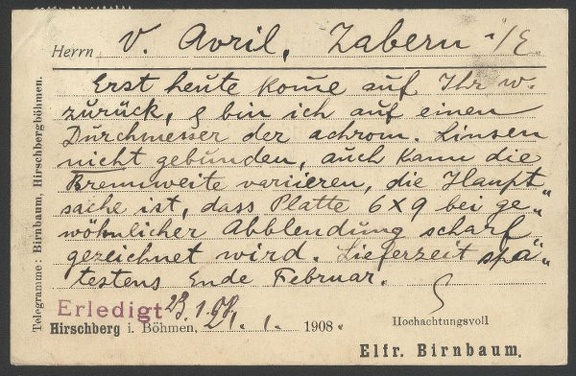 Herrn V. Avril, Zabern i/E.
Erst heute kome auf Ihr w.
zurück, & bin ich auf einen
Durchmesser der achrom. Linsen
nicht gebunden, auch kann die
Brennweite variieren, die Haupt„
sache ist, dass Platte 6x9 bei ge„
wöhnlicher Abblendung scharf
gezeichnet wird. Lieferzeit spä„
testens Ende Februar.
Erledigt 23.1.08.
Hirschberg i. Böhmen, 21. 1. 1908.
Hochachtungsvoll
Elfr. Birnbaum.
Telegramme: Birnbaum, Hirschbergböhmen.